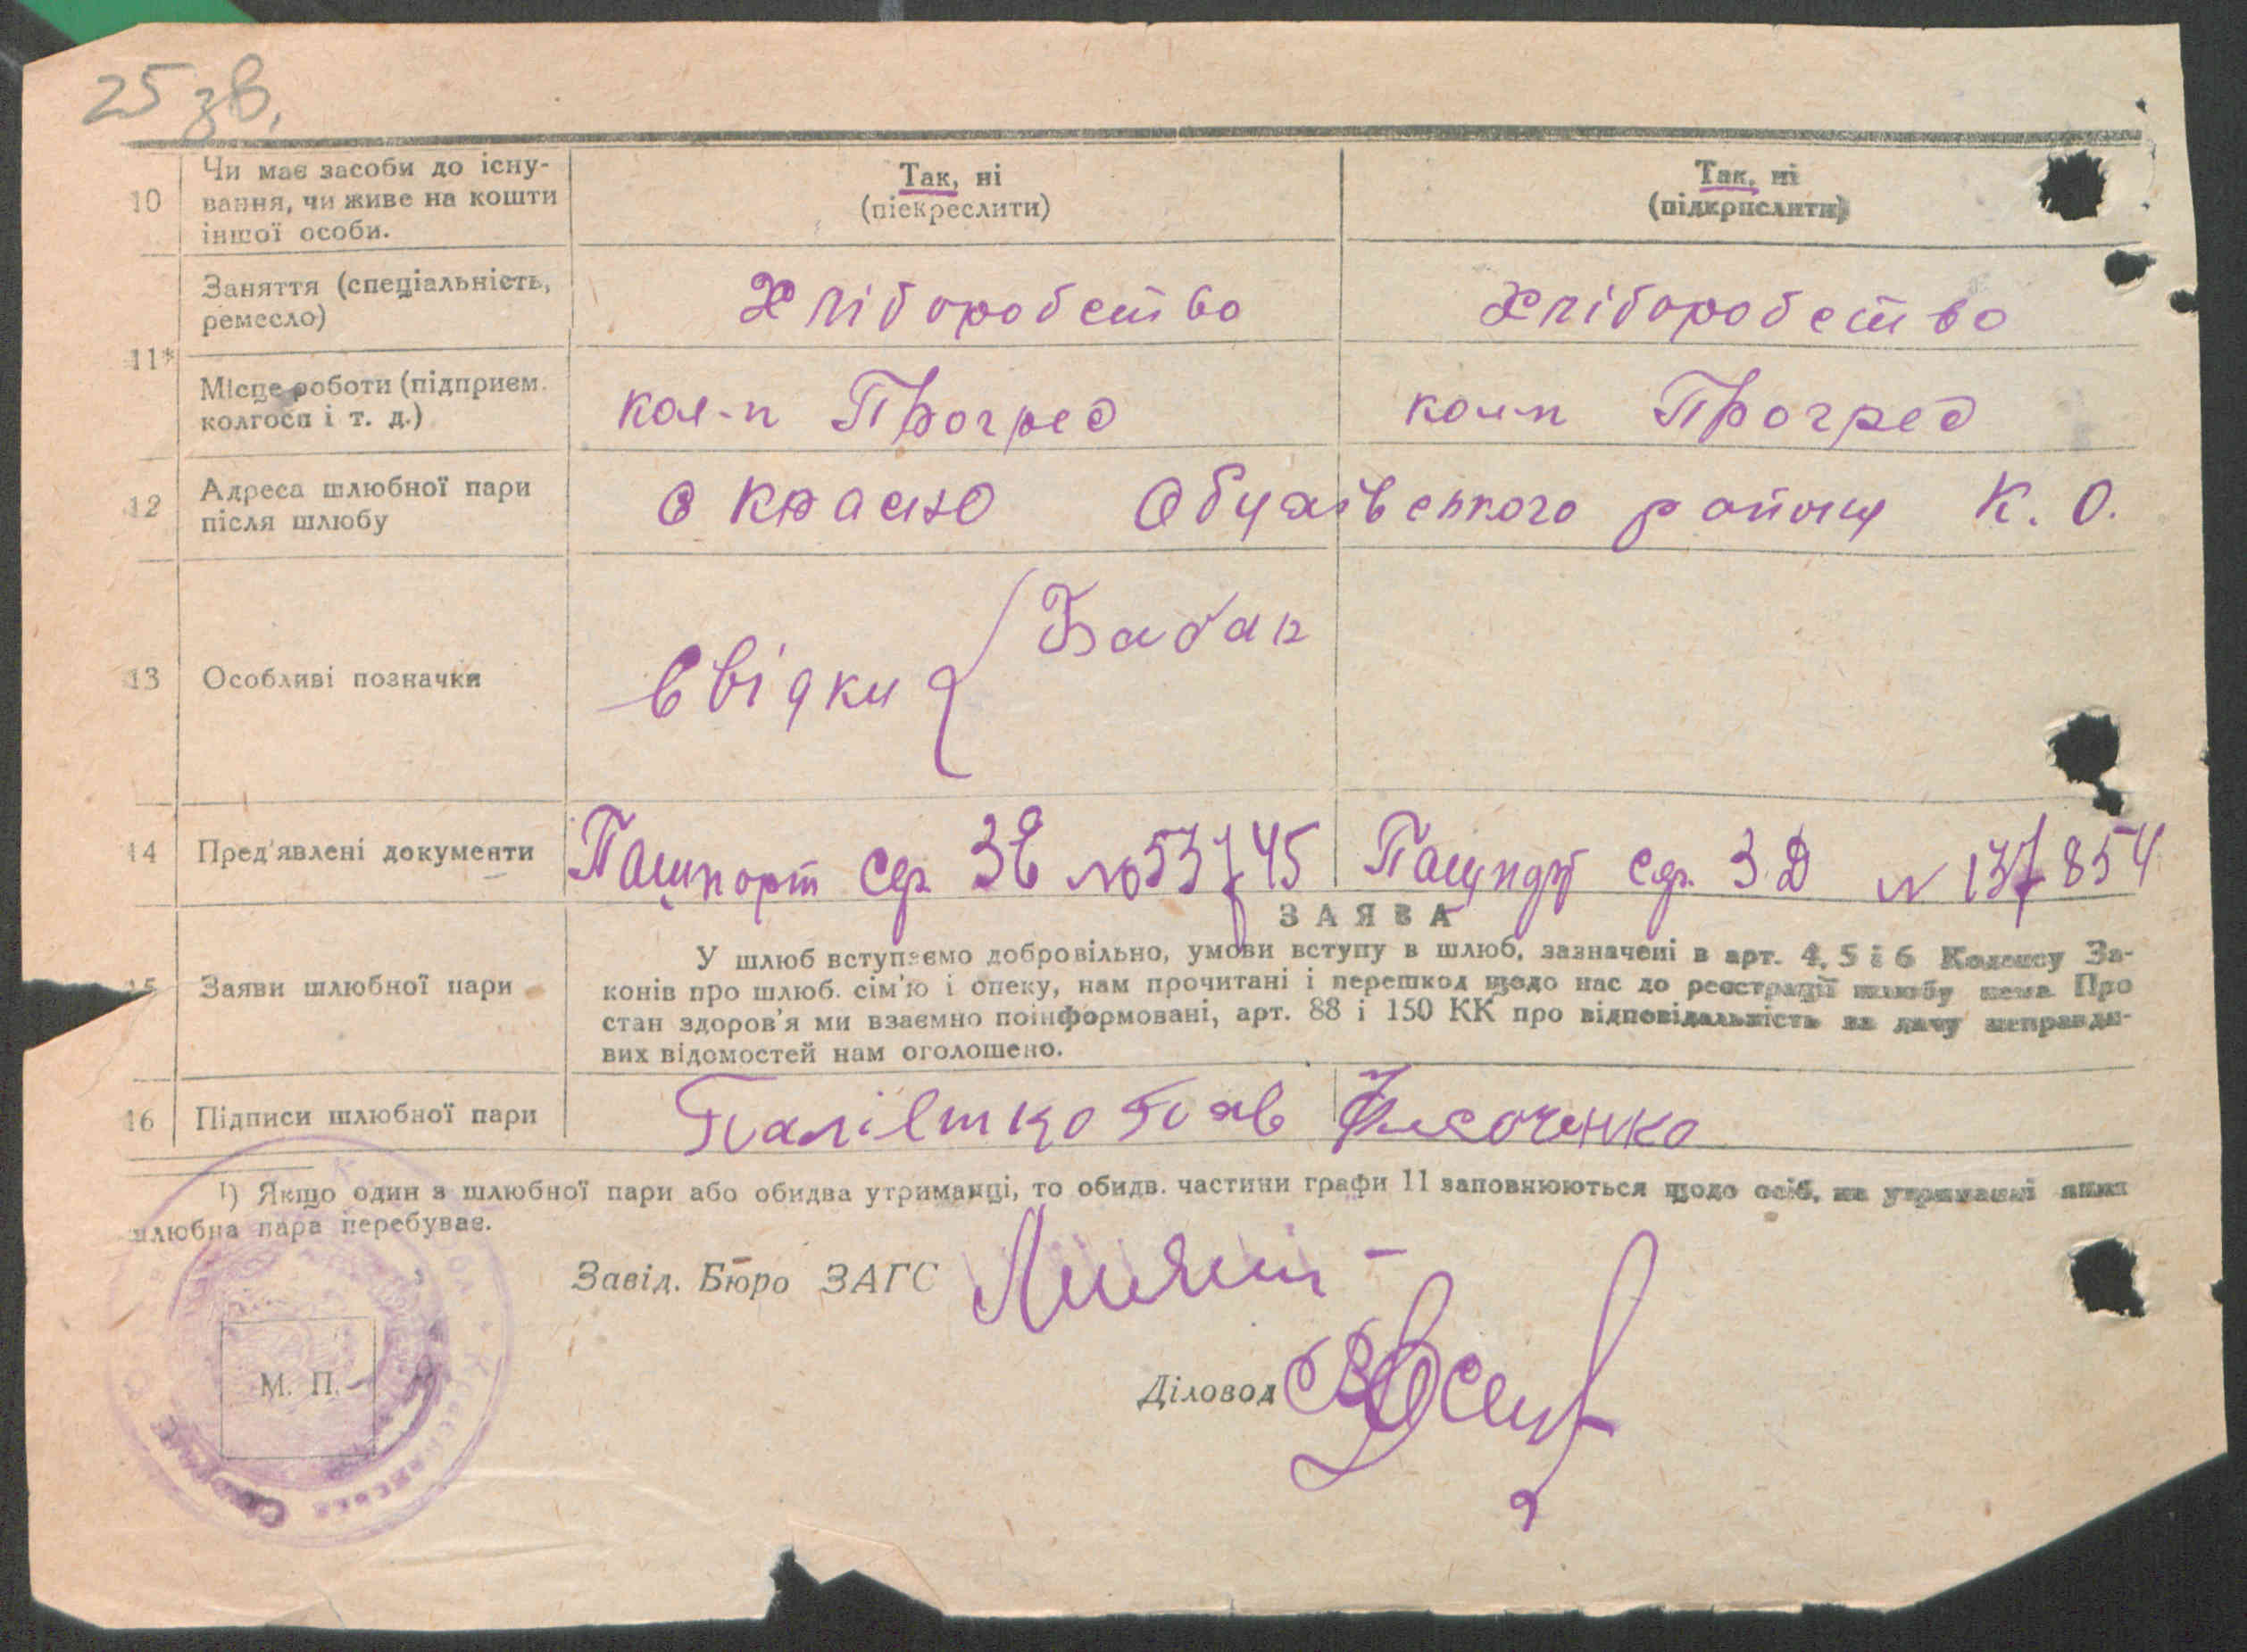 25 зв.
10
Чи має засоби до існу-
вання, чи живе на кошти
іншої особи.
Так, ні
(піекреслити)
Так, ні
(підкрислити)
11*
Заняття (спеціальність,
ремесло)
Хліборобство
Хліборобство
Місце роботи (підприєм.
колгосп і т. д.)
кол-п Прогрес
кол-п Прогрес
12
Адреса шлюбної пари
після шлюбу
с Красно Обухівського району К. О.
13
Особливі позначки
Свідки { Бабак
14
Пред'явлені документи
Пашпорт сер. ЗЕ № 537745
Пашпорт сер. З.Д № 137854
ЗАЯВА
15
Заяви шлюбної пари
У шлюб вступаємо добровільно, умови вступу в шлюб, зазначені в арт. 4, 5 і 6 Кодексу За-
конів про шлюб. сім'ю і опеку, нам прочитані і перешкод щодо нас до реєстрації шлюбу нема Про
стан здоров'я ми взаємно поінформовані, арт. 88 і 150 КК про відповідальність за дачу неправди-
вих відомостей нам оголошено.
16
Підписи шлюбної пари
¹) Якщо один з шлюбної пари або обидва утриманці, то обидв. частини графи 11 заповнюються щодо осіб, на утриманні яких
шлюбна пара перебуває.
Завід. Бюро ЗАГС
М. П.
Діловод